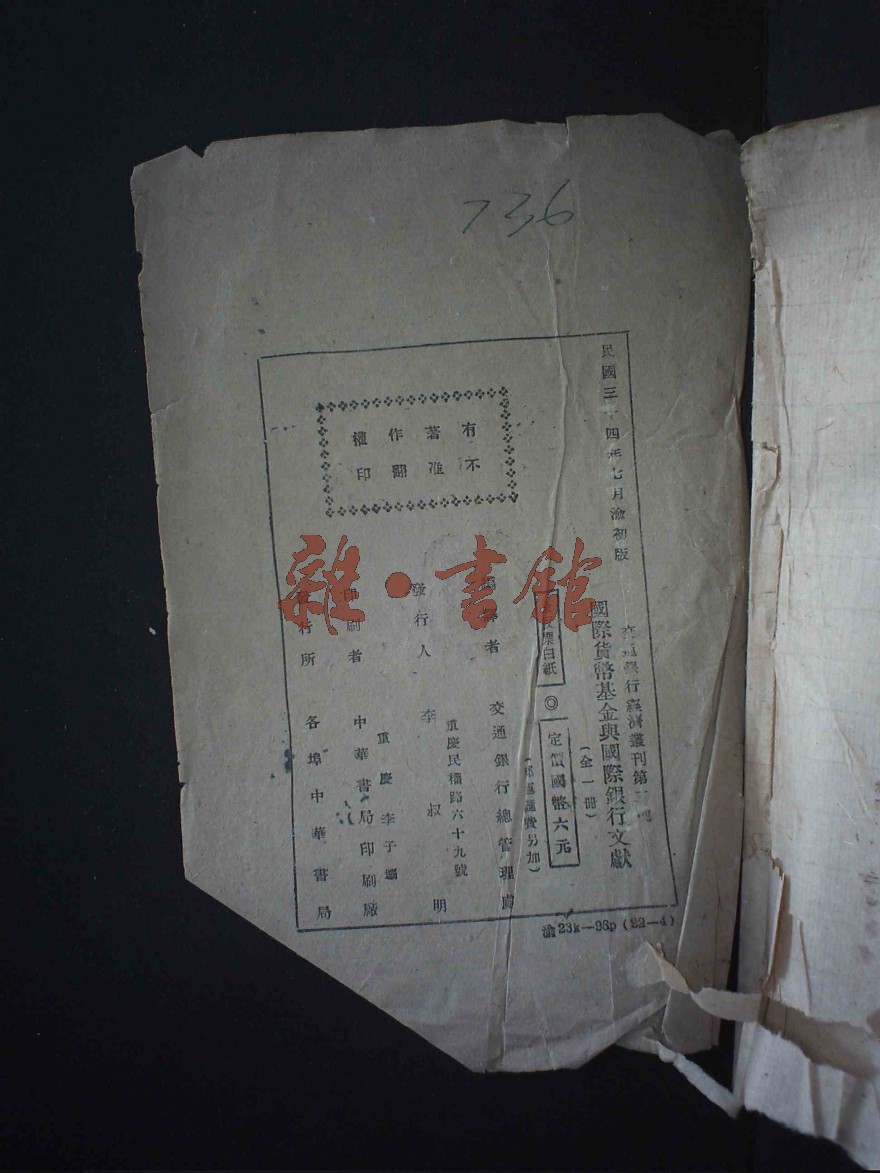 736
民國三十四年七月渝初版
交通銀行經濟叢刊第三種
國際貨幣基金與國際銀行文獻
(全一冊)
漂白紙 ◎ 定價國幣六元
(郵運匯費另加)
編譯者 交通銀行總管理處
發行人 李叔明
重慶民權路六十九號
印刷者 中華書局印刷廠
重慶李子壩
發行所 各埠中華書局
有著作權
不准翻印
渝23k—98p(22—4)
雜·書館